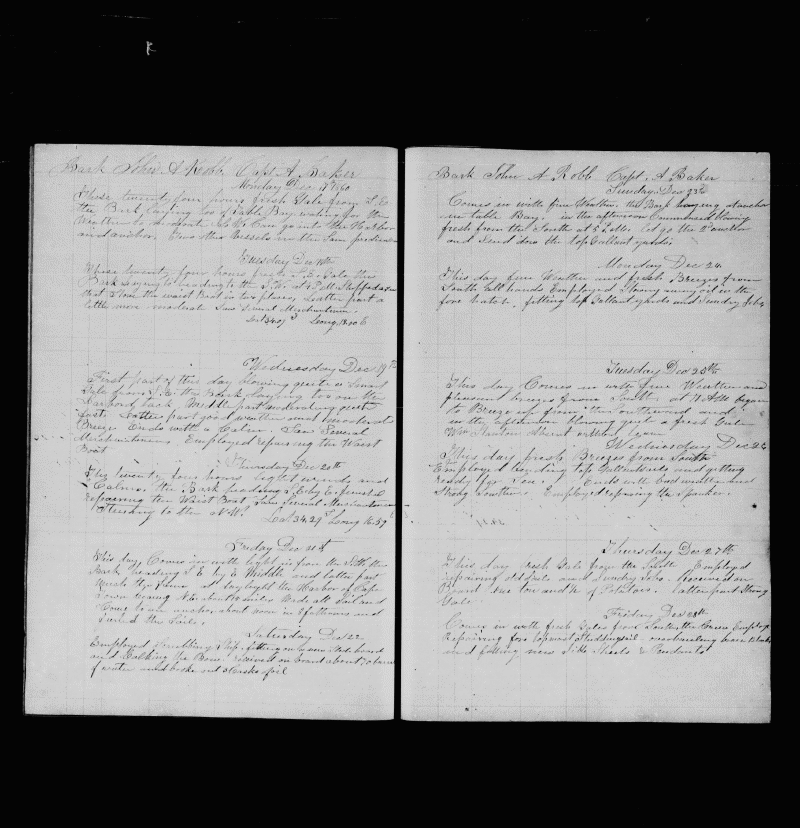 Bark John A Robb Capt A Baker
Monday Dec
These twenty four hours fresh Gale from S. E.
the Bark laying too off Table Bay waiting for the
Weather to moderate so We Can go into the Harbor
and anchor.
Tuesday Dec 18th
These twenty four hours fresh S. E. Gale the
Bark laying too heading to the S.W. at
that Stove the waist Boat in two places Latter part a
little more moderate Saw Several Merchantmen
Long 18.00 E
Wednesday Dec 19th
First part of this day blowing quite a Smart
Gale from S. E. the Bark laying too on the
Larboard tack Middle part moderating quite
fast. Latter part good weather and moderate
Breeze Ends with a Calm. Saw Several
Merchantmen. Employed repairing the Waist
Boat
Thursday Dec 20th
This twenty four hours light winds and
Calms. the Bark heading S. E by E
repairing the Waist Boat Saw Several Merchantmen
Steering to the N. W.
Lat 34.29 S Long 16.59
Friday Dec 21st
This day Comes in with light air from the South the
Bark heading E by S Middle and latter part
much the same at daylight the Harbor of Cape
Town miles Made all Sail and
Come to an anchor about noon in 8 fathoms and
furled the Sails.
Saturday Dec 22
Employed Scrubbing Ship. fitting on
and the Bone received on board about 70 barrels
of water and broke out 3 Casks of oil
Bark John A Robb Capt, A Baker
Sunday Dec 23d
Comes in with fine Weather the Bark laying at anchor
in table Bay. in the afternoon Commenced blowing
fresh from the South at 5 let go the 2d anchor
and Send down the top Gallant yards
Monday Dec 24
This day fine Weather and fresh Breezes from
South all hands Employed Stowing away oil in the
fore hatch, fitting top Gallant yards and Sundry Jobs
Tuesday Dec 25th
This day Comes in with fine Weather and
pleasant breezes from South at 7 AM began
to Breeze up from the southward and
in the afternoon blowing just a fresh Gale
Wm absent without leave
Wednesday Dec 26
This day fresh Breezes from South
Employed bending top Gallantsails and getting
ready for Sea. Ends with Cool weather and
Strong Southern. Employed repairing the Spanker.
Thursday Dec 27th
This day fresh Gale from the South Employed
repairing old Sails and Sundry Jobs. Received on
Board of Potatoes. latter part Strong
Gale
Friday Dec 28th
Comes in with fresh Gales from South, the Crew Employed
Repairing fore topmast Studdingsail. overhauling
and fitting new Jibb Sheets & Pendants